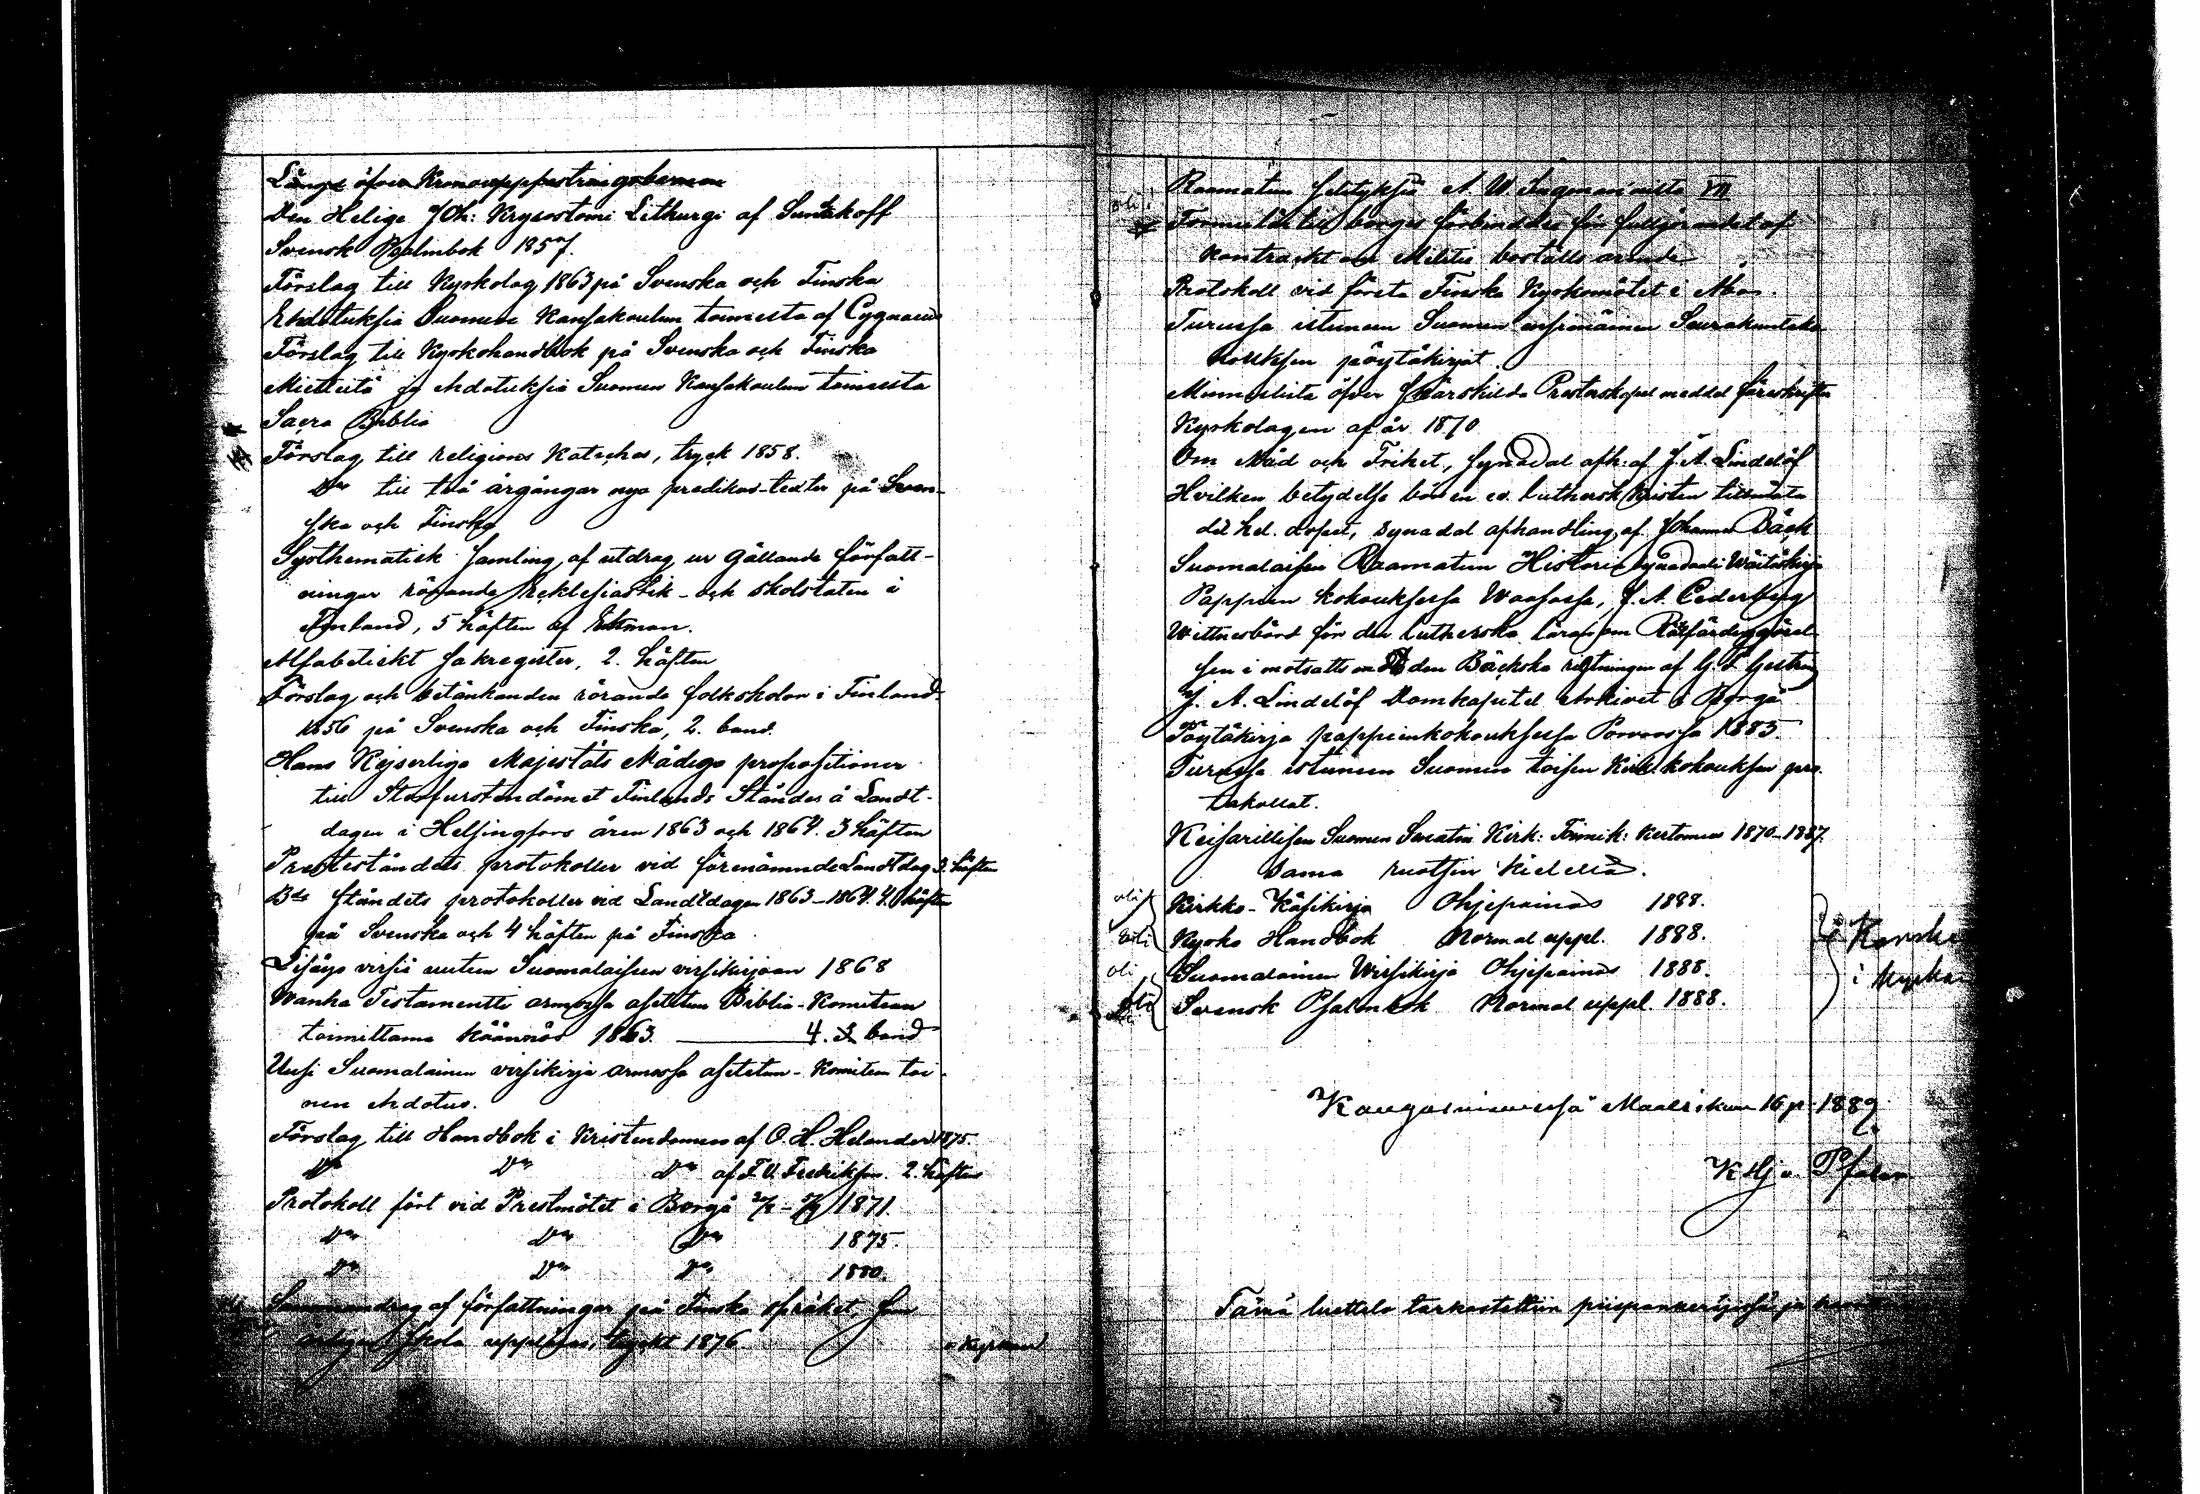 Längd öfver
Den Helige Joh: Krysostomi Lithurgi af Suntzkoff
Svensk Psalmbok 1857.
Förslag till Kyrkolag 1863 på Svenska och Finska
Ehdotuksia Suomen Kansakoulun toimesta af Cygnaeus
Förslag till Kyrkohandbok på Svenska och Finska
Mietteitä ja ehdotuksia Suomen Kansakoulun toimesta
Sacra Biblia
Förslag till religions Kateches, tryck 1858.
Do till två årgångar nya predikos-texter på Sven-
ska och Finska
Systhematisk samling af utdrag ur gällande författ-
ningar rörande ecklesiastik- och skolstaten i
Finland, 5 häften af Ekman.
Alfabetiskt sakregister, 2. häften
Förslag och betänkanden rörande folkskolor i Finland
1856 på Svenska och Finska, 2. band.
Hans Kejserliga Majestäts Nådiga propositioner
till Storfurstendömet Finlands Ständer å Landt-
dagen i Helsingfors åren 1863 och 1864. 3 häften
Presteståndets protokoller vid förenämnde Landtdag 3. häften
Bde ståndets protokoller vid Landtdagen 1863-1864. 4. häften
på Svenska och 4 häften på Finska
Lisäys virsiä uuteen Suomalaiseen virsikirjaan 1868
Wanha Testamentti armossa asetetun Biblia-Komitean
toimittama käännös 1863. 4. band
Uusi Suomalainen virsikirja armossa asetetun-Komitean toi-
nen ehdotus.
Förslag till Handbok i Kristendomen af O. H. Helander 1875.
Do Do Do af F. V. Fredriksson 2. häften
Protokoll fört vid Prestmötet i Borgå 1871.
Do Do Do 1875.
Do Do Do 1880.
Sammandrag af författningar på Finska språket som
årligen skola uppläsas, tryckt 1876. i kyrkan
Raamatun selityksiä A. W. Ingmanista VII
oli Formulär till borges förbindelse för fullgörandet af
Kontrakt om Militie boställs arende
Protokoll vid första Finska Kyrkomötet i Åbo.
Turussa istuneen Suomen ensimäinen
kouksen pöytäkirjat
Minneslista öfver särskilda Presterskapet meddel föreskrifter
Kyrkolagen af år 1870
Om Nåd och Frihet, synodal afh: af J. A. Lindelöf
Hvilken betydelse bör en ev. luthersk kristen tillmäta
det hel. dopet, synodal afhandling af Johannes Bäck
Suomalaisen Raamatun Historia synodali Wäitöskirja
Pappein kokouksessa Waasassa, J. A. Cederberg
Wittnesbörd för den lutherska läran om Rättfärdiggörel-
sen i motsatts mot den Bäckska riktningen af
J. A. Lindelöf Domkapitel Arkivet i Borgå
Pöytäkirja pappeinkokouksessa Porvoossa 1885
Turussa istuneen Suomen toisen Kirk. kokouksen pro-
tokollat.
Keisarillisen Suomen Senatin Kirk: Toimik: Kertomus 1870-1887.
Sama ruotsin kielellä.
oli Kirkko-Käsikirja Ohjepainos 1888.
oli Kyrko Handbok Normal uppl. 1888.
oli Suomalainen Wirsikirja Ohjepainos 1888.
oli Svensk Psalmbok Normal uppl. 1888.
i Kyrkan
Kangasniemessä Maaliskuun 16 p. 1889.
K Hj.
Tämä luettelo tarkastettiin piispankäräjissä ja